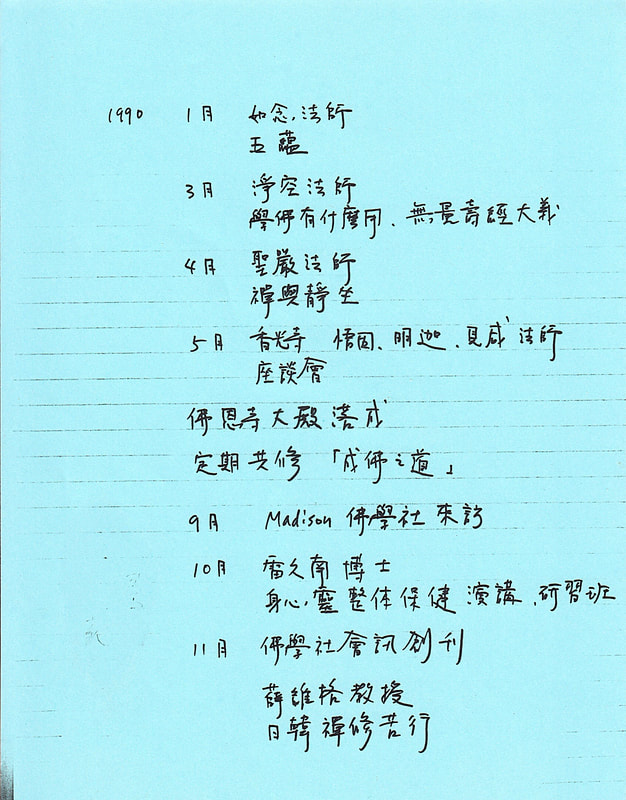 1990 1月 如念法師
五蘊
3月 淨空法師
學佛有什麼用、無量壽經大義
4月 聖嚴法師
禪與靜坐
5月 香光寺 悟因、明迦、見咸法師
座談會
佛恩寺大殿落成
定期共修「成佛之道」
9月 Madison 佛學社來訪
10月 雷久南博士
身心靈整体保健演講、研習班
11月 佛學社會訊創刊
薛維格教授
日韓禪修苦行